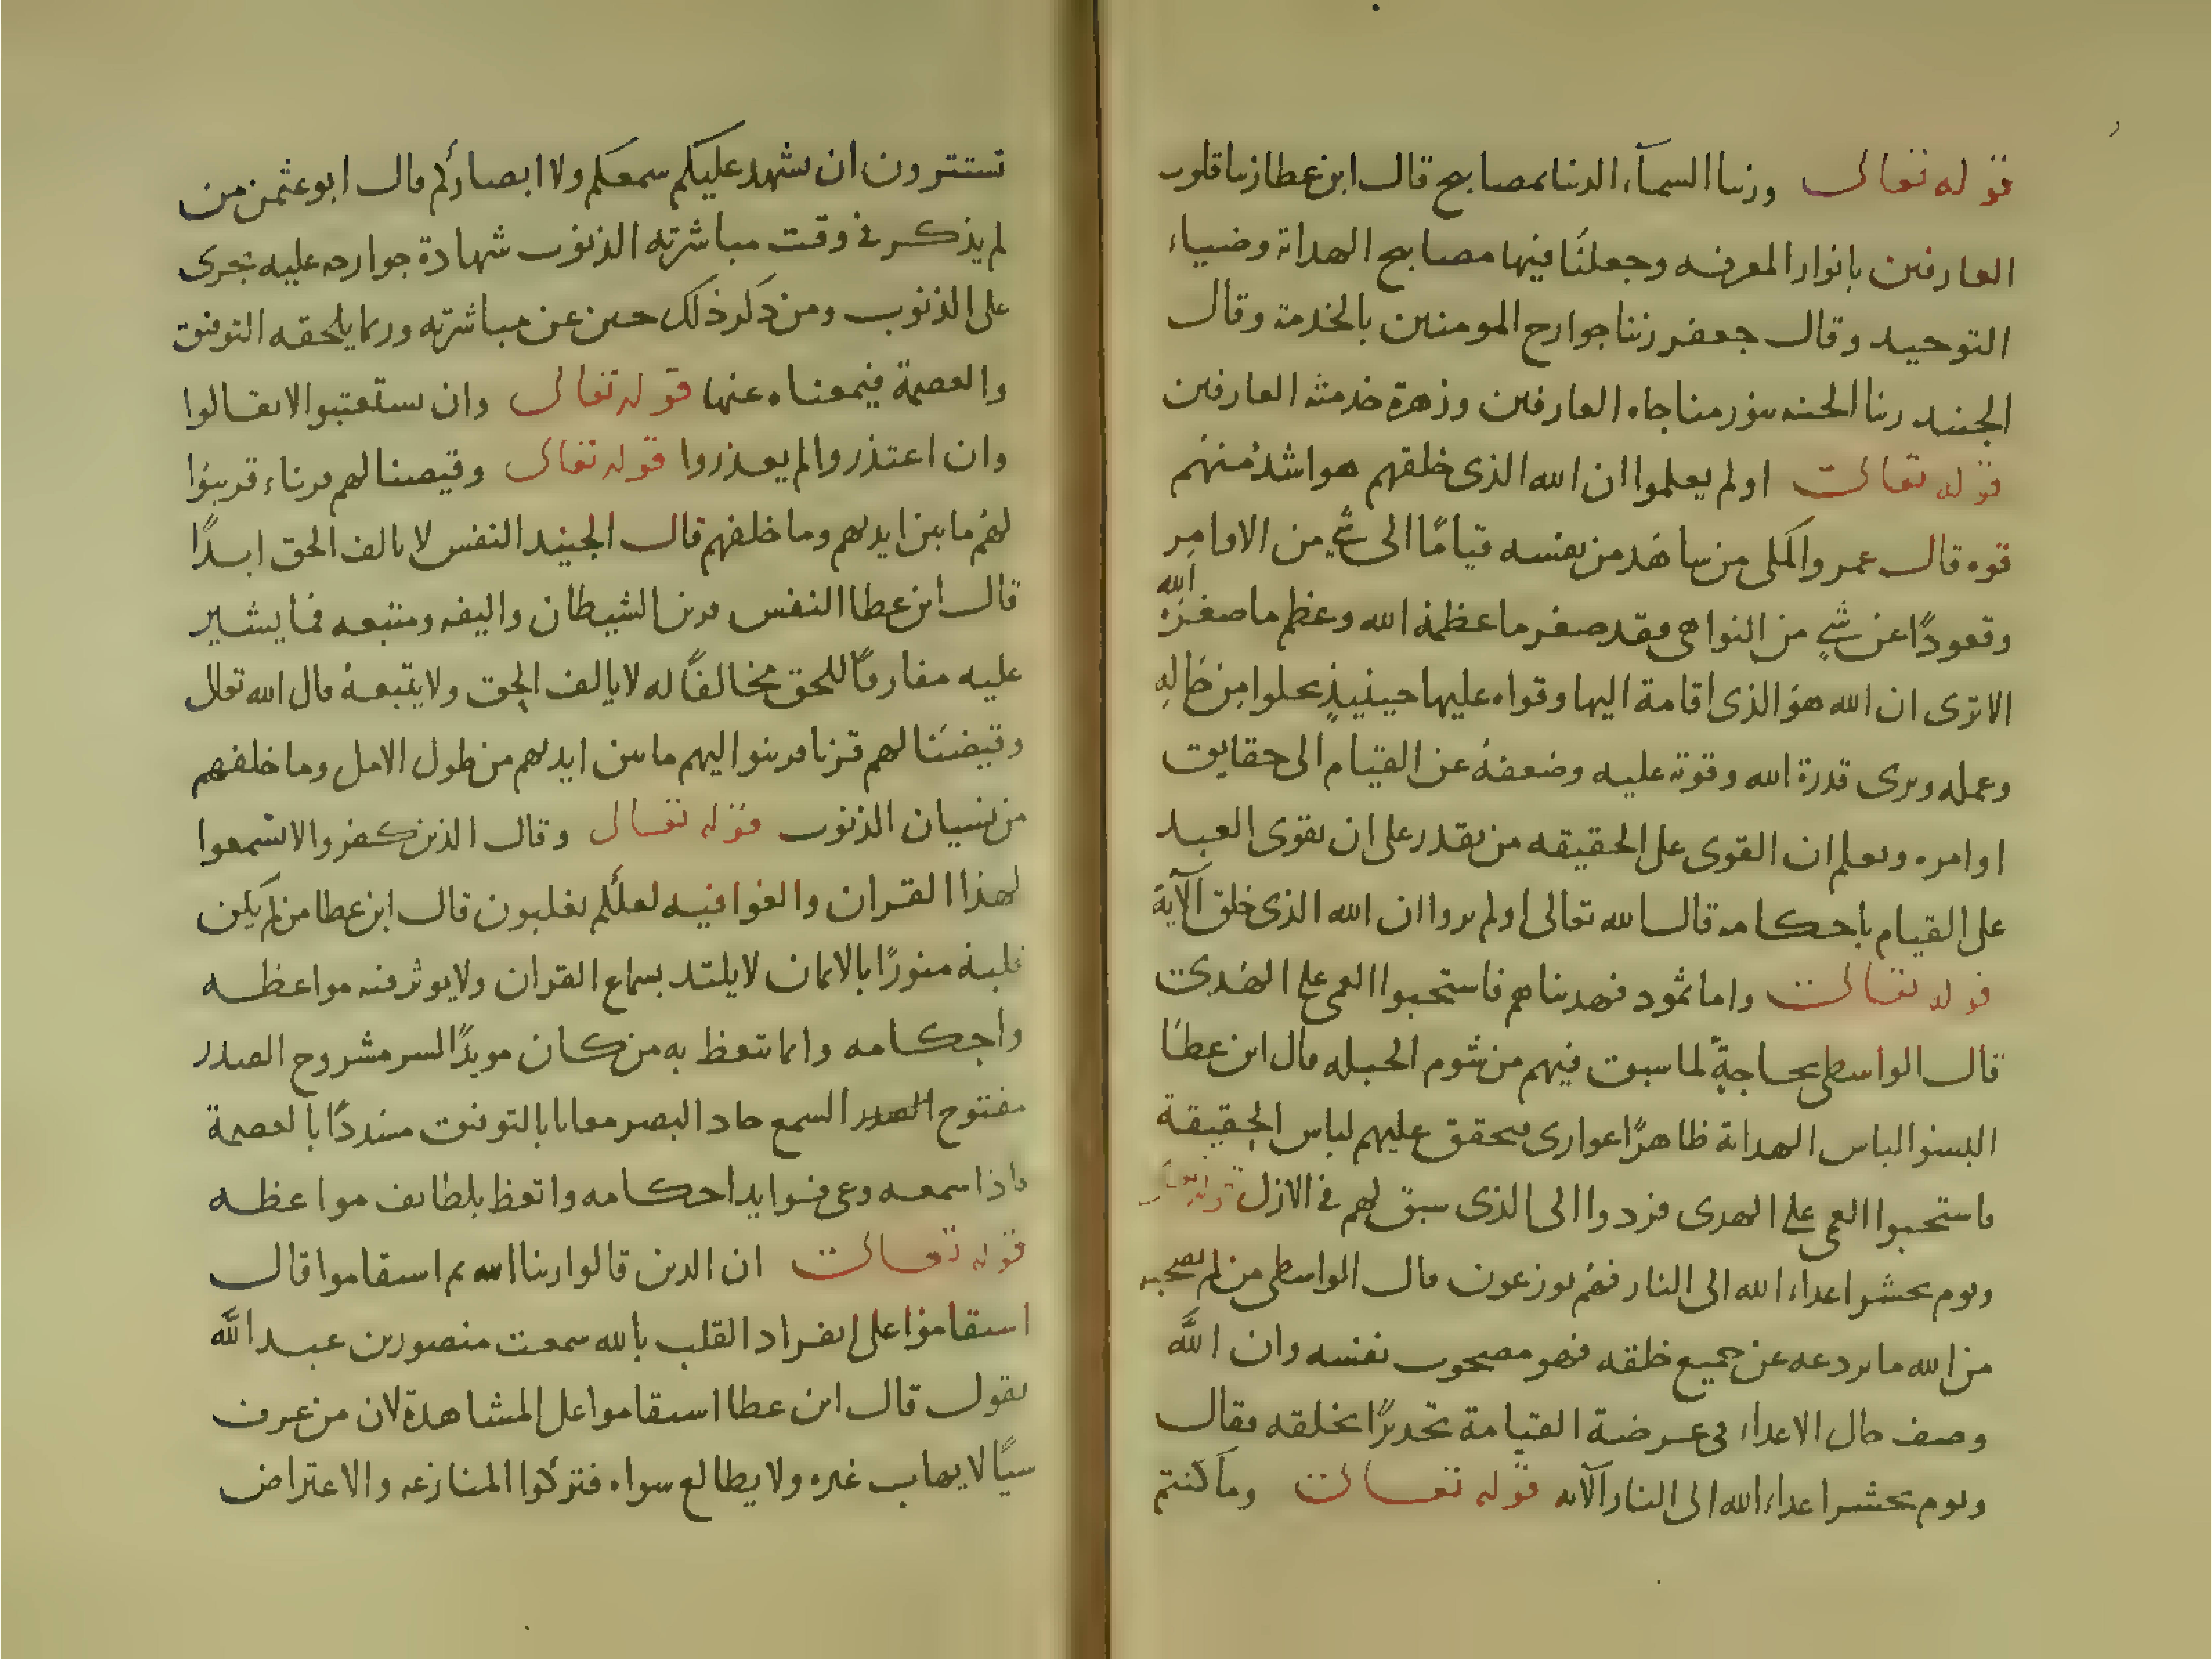 قوله تعالى وزينا السماء الدنيا بمصابيح قال ابن عطا زينا قلوب
العارفين بانوار المعرفه وجعلنا فيها مصابيح الهداية وضياء
التوحيد وقال جعفر زينا جوارح المومنين بالخدمة وقال
الجنيد زينا الجنه بنور مناجاه العارفين وزهرة خدمته العارفين
قوله تعالى اولم يعلموا ان الله الذى خلقهم هو اشد منهم
قوه قال عمرو المكى من شاهد من نفسه قيامًا الى شئ من الاوامر
وقعودًا عن شئ من النواهى فقد صغر ما عظمه الله وعظم ما صغره الله
الا ترى ان الله هو الذى اقامة اليها وقواه عليها حينيذٍ يخلوا من حاله
وعمله ويرى قدرة الله وقوته عليه وضعفه عن القيام الى حقايق
اوامره ويعلم ان القوى على الحقيقه من يقدر على ان يقوى العبد
على القيام باحكامه قال الله تعالى اولم يروا ان الله الذى خلق الآية
قوله تعالى واما ثمود فهديناهم فاستحبوا العمى على الهدى
قال الواسطى لما سبق فيهم من شوم الجبله قال ابن عطا
البسوا لباس الهداية ظاهرًا عوارى فتحقق عليهم لباس الحقيقة
فاستحبوا العمى على الهدى فردوا الى الذى سبق لهم فى الازل قوله تعالى
ويوم يحشر اعداء الله الى النار فهم يوزعون قال الواسطى من لم يصحبه
من الله ما يردعه عن جميع خلقه فهو مصحوب نفسه وان الله
وصف حال الاعداء فى عرضة القيامة تحذيرًا لخلقه فقال
ويوم يحشر اعداء الله الى النار الآيه قوله تعالى وما كنتم
تستترون ان يشهد عليكم سمعكم ولا ابصاركم قال ابو عثمن من
لم يذكر فى وقت مباشرته الذنوب شهادة جوارحه عليه تجرى
على الذنوب ومن ذكر ذلك حين عن مباشرته وربما يلحقه التوفيق
والعصمة فيمعناه عنها قوله تعالى وان يستعتبوا الا يقالوا
وان اعتذروا لم يعذروا قوله تعالى وقيضنا لهم قرناء فزينوا
لهم ما بين ايديهم وما خلفهم قال الجنيد النفس لا يالف الحق ابدًا
قال ابن عطا النفس قرين الشيطان واليفه ومتبعه فما يشير
عليه مفارقًا للحق مخالفًا له لا يالف الحق ولا يتبعه قال الله تعالى
وقيضنا لهم قرنا فزينوا اليهم ما بين ايديهم من طول الامل وما خلفهم
من نسيان الذنوب قوله تعالى وقال الذين كفروا لا تسمعوا
لهذا القران والغوا فيه لعلكم تغلبون قال ابن عطا من لم يكن
قلبه منورًا بالايمان لا يلتذ بسماع القران ولا يوثر فيه مواعظه
واحكامه وانما يتعظ به من كان مويدًا السر مشروح الصدر
مفتوح السمع حاد البصر معانا بالتوفيق مسددًا بالعصمة
فاذا سمعه وعى فوايد احكامه واتعظ بلطايف مواعظه
قوله تعالى ان الذين قالوا ربنا الله ثم استقاموا قال
استقاموا على انفراد القلب بالله سمعت منصور بن عبد الله
يقول قال ابن عطا استقاموا على المشاهدة لان من عرف
شيًا لا يهاب غيره ولا يطالع سواه فتركوا المنازعه والاعتراض